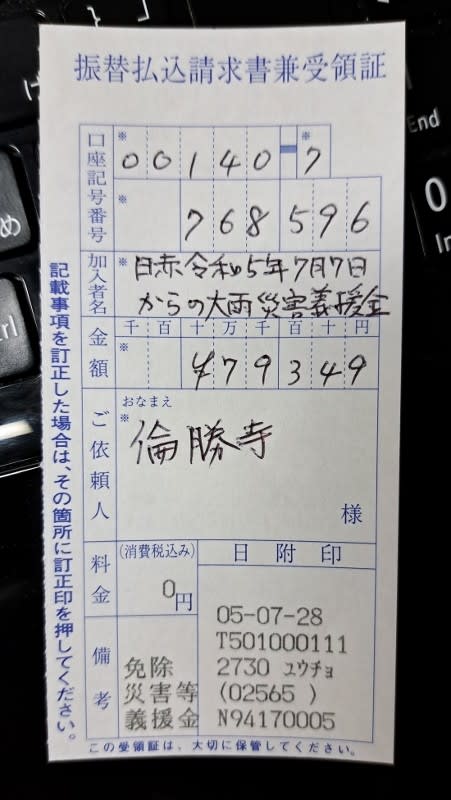 振替払込請求書兼受領証
口座記号番号
※ 00140-※7
※ 768596
加入者名
※ 日赤令和5年7月7日
からの大雨災害義援金
金額
千百十万千百十円
※ ¥79349
ご依頼人
おなまえ
※ 倫勝寺
様
料金
(消費税込み)
0円
備考
免除
災害等
義援金
日附印
05-07-28
T501000111
2730 ユウチョ
(02565 )
N94170005
記載事項を訂正した場合は、その箇所に訂正印を押してください。
この受領証は、大切に保管してください。
End
0
In
め
trl
け